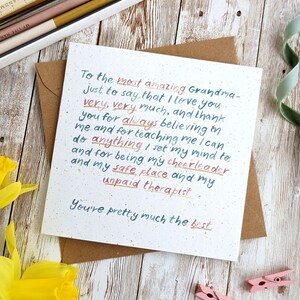 To the most amazing Grandma-
just to say that I love you
very, very much, and thank
you for always believing in
me and for teaching me I can
do anything I set my mind to
and for being my cheerleader
and my safe place and my
unpaid therapist.
You're pretty much the best